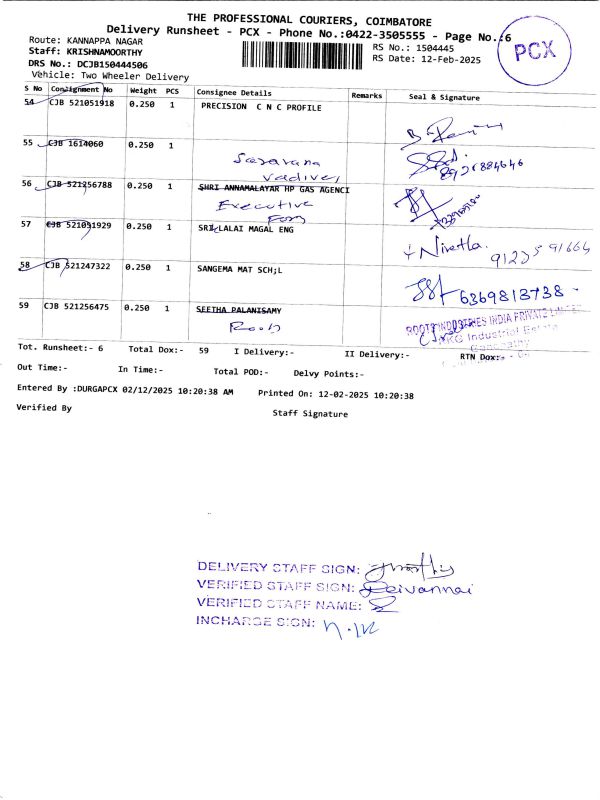 THE PROFESSIONAL COURIERS, COIMBATORE
Delivery Runsheet - PCX - Phone No.:0422-3505555 - Page No.:6
PCX
Route: KANNAPPA NAGAR
RS No.: 1504445
Staff: KRISHNAMOORTHY
RS Date: 12-Feb-2025
DRS No.: DCJB150444506
Vehicle: Two Wheeler Delivery
S No Consignment No Weight PCS Consignee Details Remarks Seal & Signature
54 CJB 521051918 0.250 1 PRECISION C N C PROFILE
55 CJB 1614060 0.250 1
Saravana
Vadivel
56 CJB 521256788 0.250 1 SHRI ANNAMALAYAR HP GAS AGENCI
Executive
57 CJB 521051929 0.250 1 SRI LALAI MAGAL ENG
Nivetha.
58 CJB 521247322 0.250 1 SANGEMA MAT SCH;L
6369813738
59 CJB 521256475 0.250 1 SEETHA PALANISAMY
Roots
ROOTS INDUSTRIES INDIA PRIVATE LIMITED
RKG Industrial Estate
Ganapathy
Tot. Runsheet:- 6 Total Dox:- 59 I Delivery:- II Delivery:- RTN Dox:-
Out Time:- In Time:- Total POD:- Delvy Points:-
Entered By :DURGAPCX 02/12/2025 10:20:38 AM Printed On: 12-02-2025 10:20:38
Verified By Staff Signature
DELIVERY STAFF SIGN:
VERIFIED STAFF SIGN: Deivannai
VERIFIED STAFF NAME:
INCHARGE SIGN: